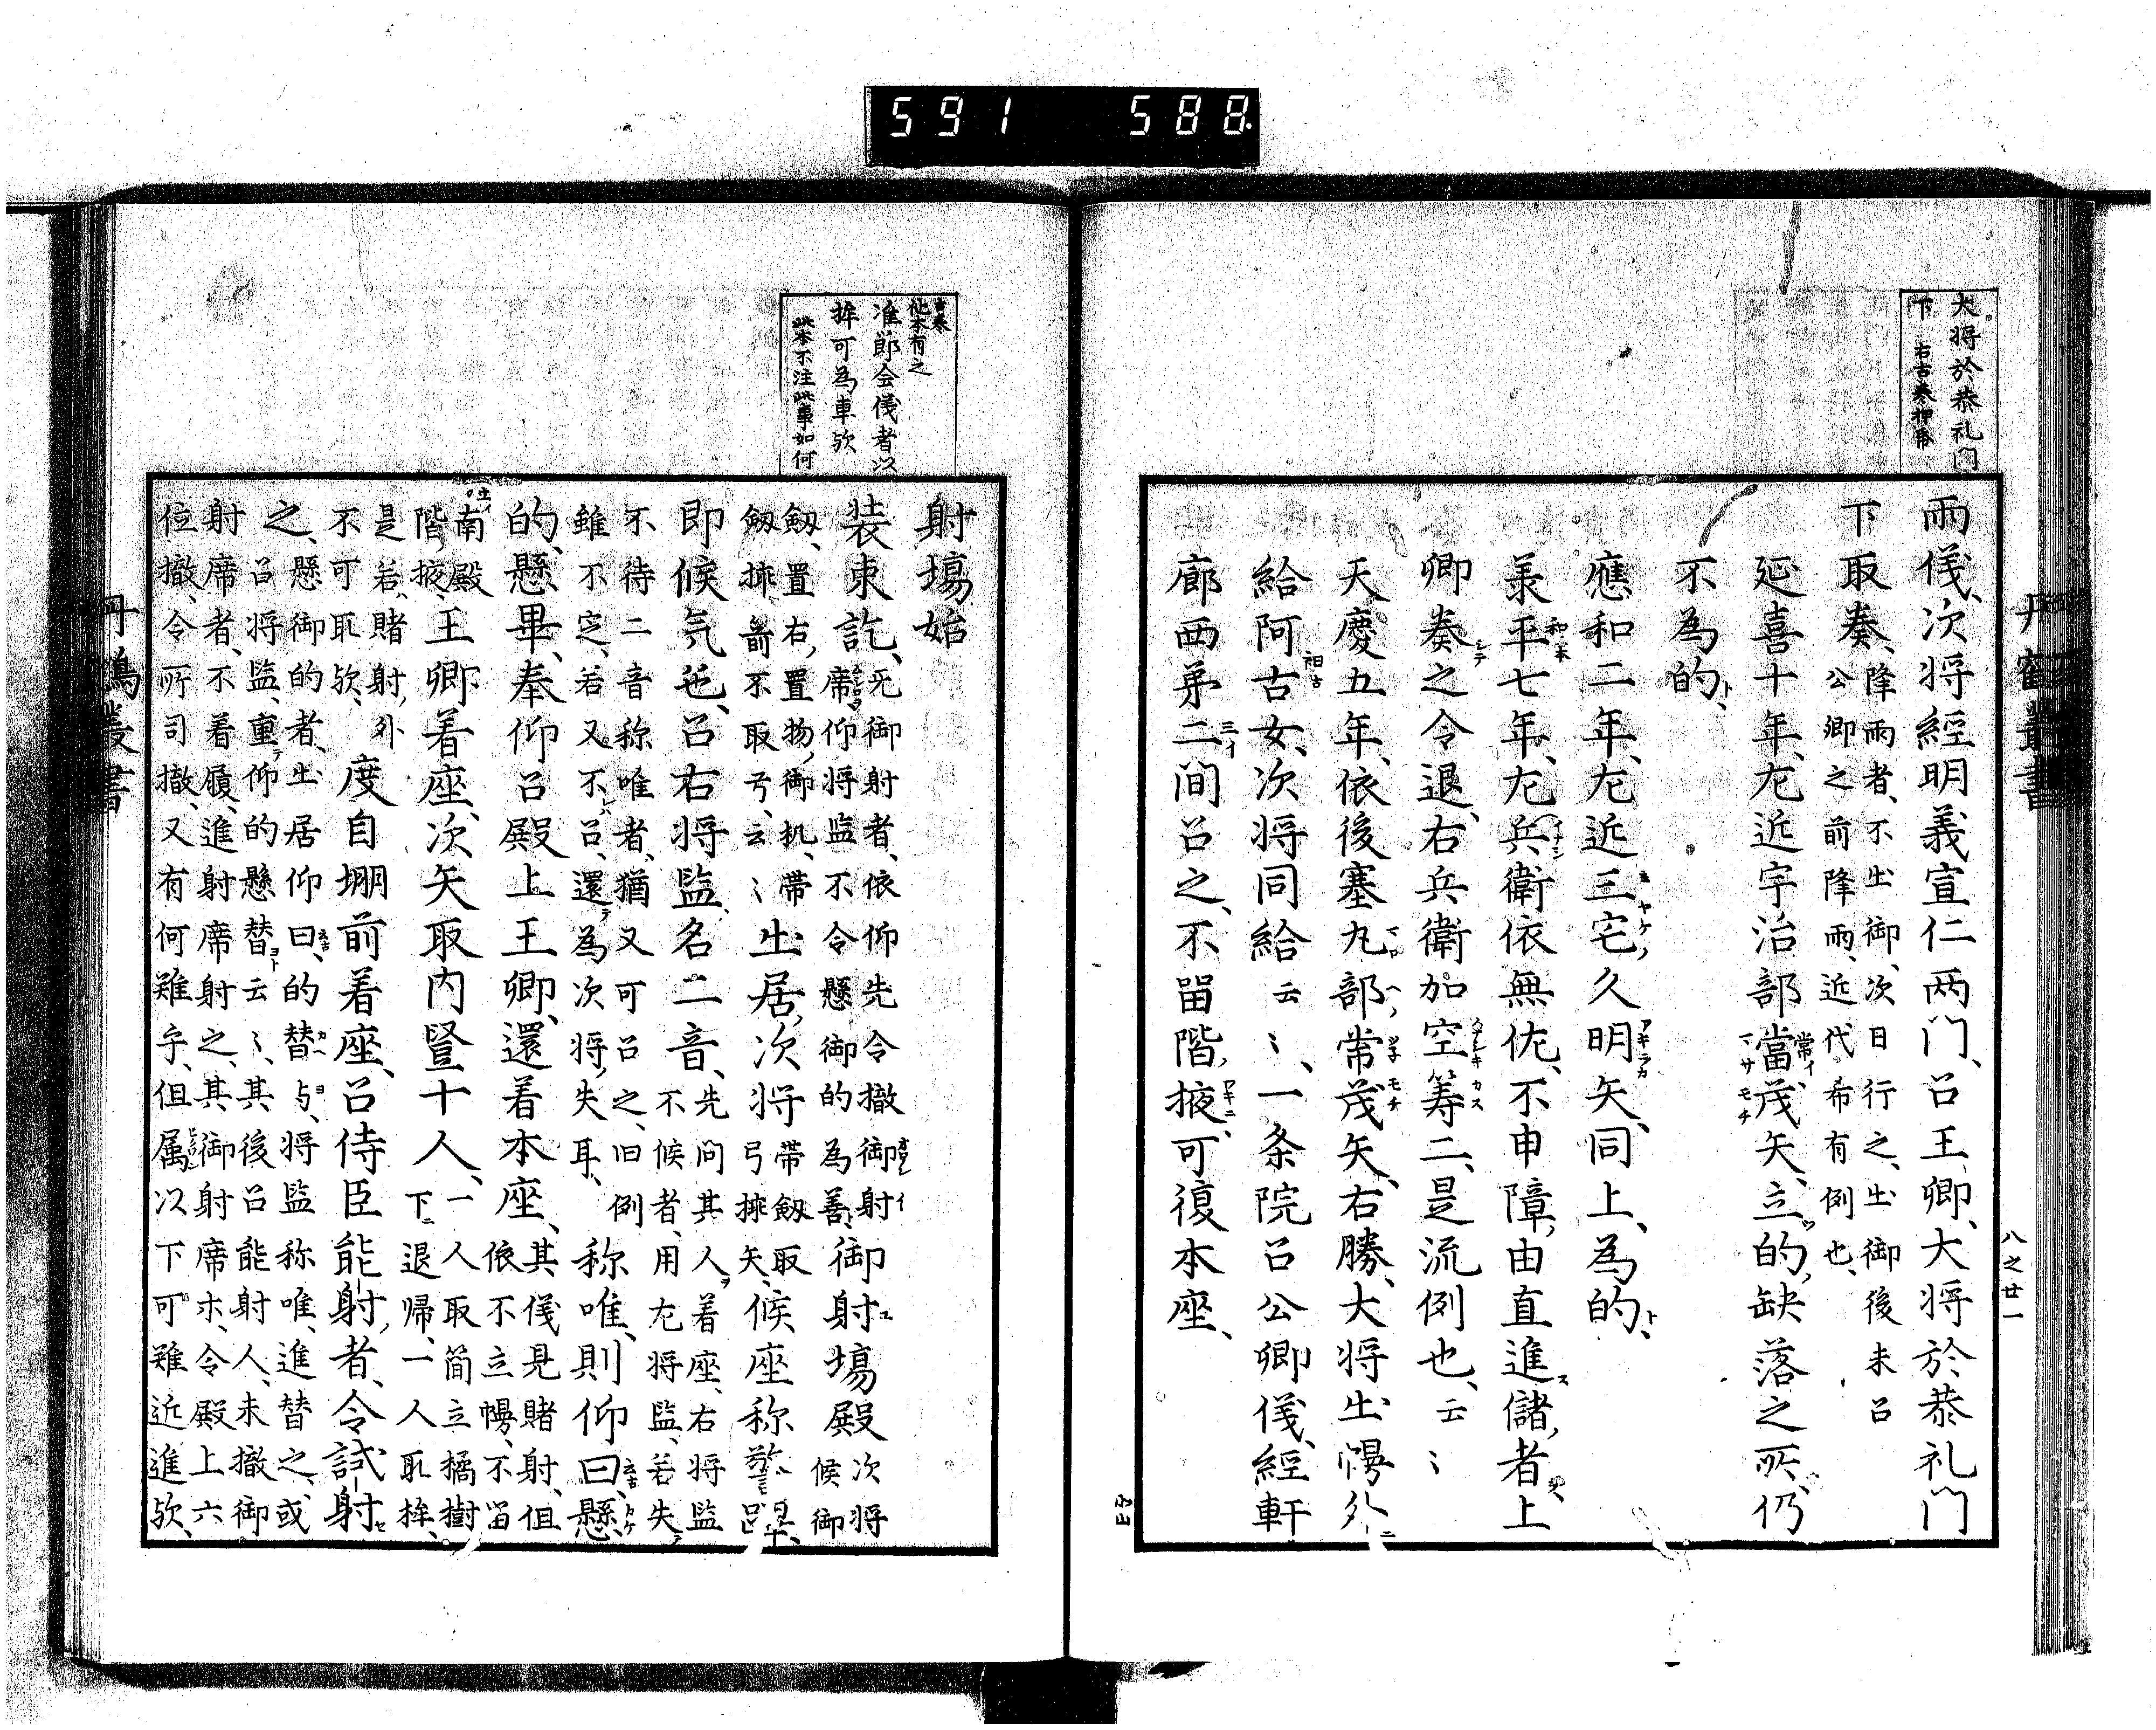 591 588
大将於恭礼门
下 右古巻押紙
雨儀、次将經明義宣仁两门、召王卿、大将於恭礼门
下取奏、降雨者、不出御、次日行之、出御後未召
公卿之前降雨、近代希有例也、
延喜十年、左近宇治部當茂矢、立的、缺落之所、仍
不為的、
應和二年、左近三宅、久明矢、同上、為的、
承平七年、左兵衛依無佐、不申障、由直進儲、者上
卿奏之令退、右兵衛加空筭二、是流例也、云〻
天慶五年、依後塞九部、常茂矢、右勝、大将出幔外
給阿古女、次将同給云〻、一条院召公卿儀、經軒
廊西第二间召之、不留階、掖可復本座、
丹鶴叢書
八之廿一
吉巻
他本有之
准節会儀者以
桙可為車欤
此本不注此事如何
射場始
装束訖、无御射者、依仰先令撤御射
席仰将監不令懸御的為善、御射場殿次将
候御
劔、置右、置物、御机、帯
劔排箭不取弓、云〻出居、次将帯劔取
弓排矢、候座称
即候気色、召右将監名二音、先问其人着座、右将監
不候者、用左将監、若失
不待二音称唯者、猶又可召之、旧例
雖不定、若又不召、還為次将、失耳、称唯、則仰曰、懸
的、懸畢、奉仰召殿上王卿、還着本座、其儀見賭射、但
依不立幔、不留
南殿
階、掖、王卿着座、次矢取内豎十人、一人取簡立橘樹
下退帰、一人取桙、
是若、賭射、外
不可取欤、度自堋前着座、召侍臣能射、者、令試射
之、懸御的者、出居仰曰、的替与、将監称唯、進替之、或
召将監、重仰的懸替云〻、其後召能射人、未撤御
射席者、不着履、進射席射之、其御射席木、令殿上六
位撤、令所司撤、又有何難乎、但属以下可難近進欤、
丹鶴叢書